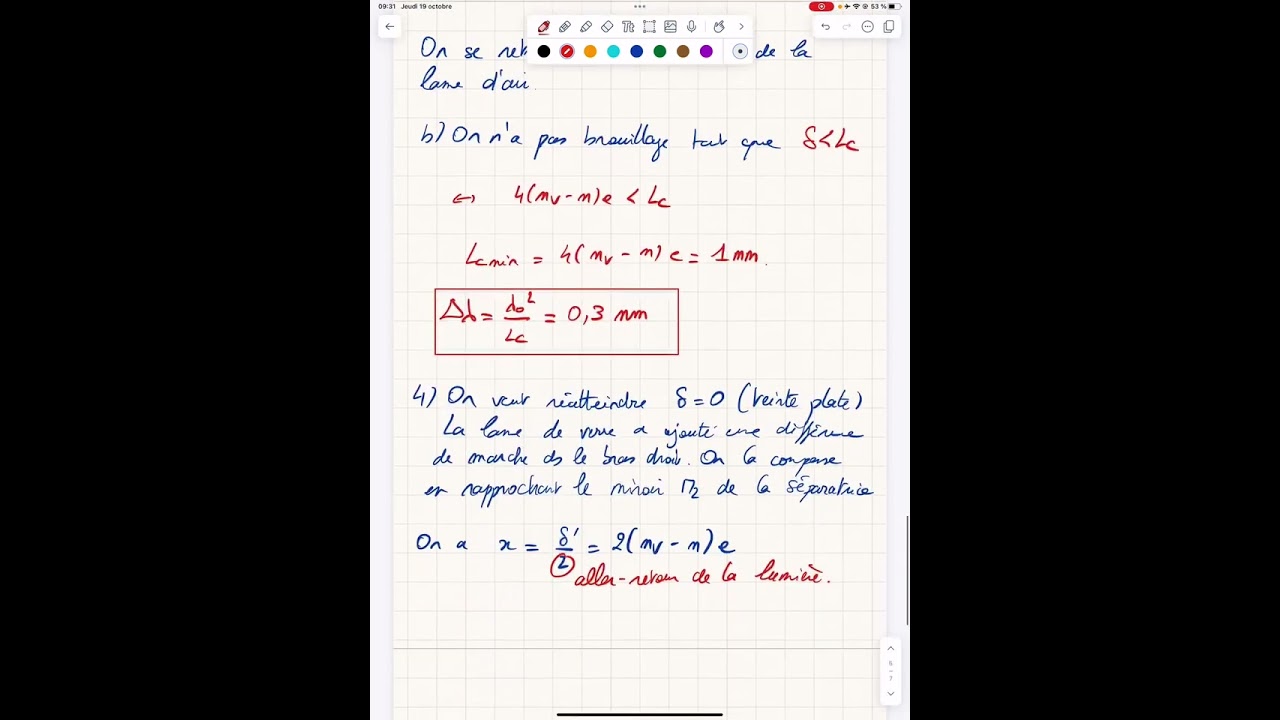 09:31 Jeudi 19 octobre
53 %
On se ret de la
lame d'air.
b) On n'a pas brouillage tant que δ<Lc
↔ 4(nv-n)e < Lc
Lcmin = 4(nv-n)e = 1mm.
Δλ = λ0²/Lc = 0,3 nm
4) On veut réatteindre δ=0 (teinte plate)
La lame de verre a ajouté une différence
de marche ds le bras droit. On la compense
en rapprochant le miroir M2 de la séparatrice
On a x = δ'/2 = 2(nv-n)e
aller-retour de la lumière.